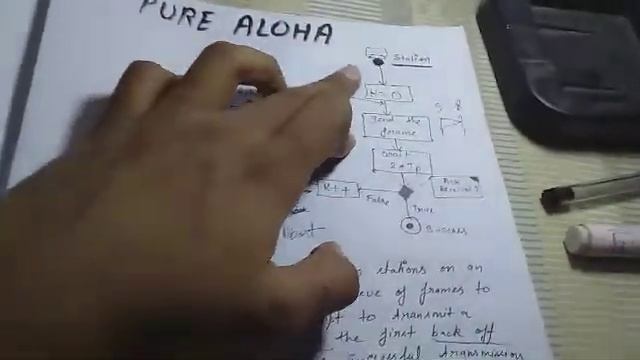 PURE ALOHA
Station
K = 0
Send the
frame
Wait
2 * Tp
K++
False
True
Ack
Received?
Success
Abort
stations on an
of frames to
to transmit a
the first back off
successful transmissions